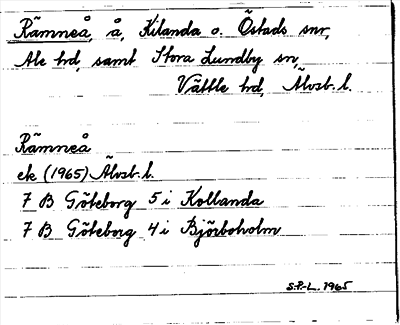 Rämneå, å, Kilanda o. Östads snr,
Ale hd, samt Stora Lundby sn,
Vättle hd, Älvsb. l.
Rämneå
ek (1965) Älvsb. l.
7 B Göteborg 5 i Kollanda
7 B Göteborg 4 i Björboholm
S.P-L. 1965